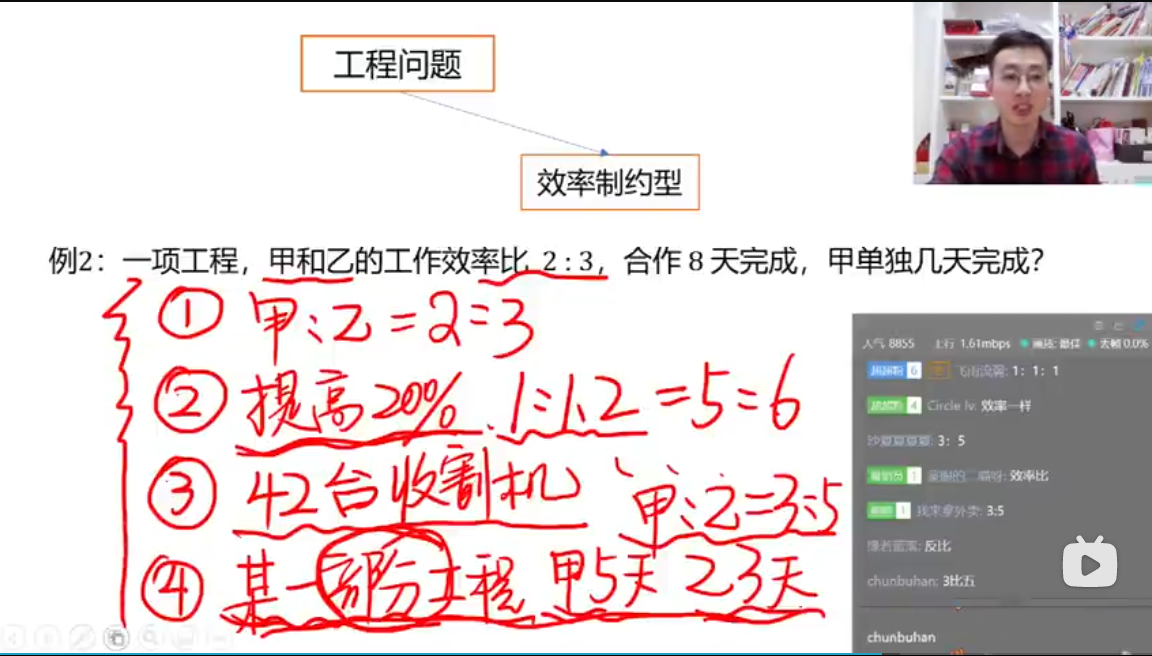 工程问题
效率制约型
例2：一项工程，甲和乙的工作效率比 2 : 3，合作 8 天完成，甲单独几天完成？
① 甲:乙=2:3
② 提高20% 1:1.2=5:6
③ 42台收割机 甲:乙=3:5
④ 某一部分工程 甲5天 乙3天
人气 8855 上行 1.61mbps 画质: 最佳 丢帧 0.0%
6 1：1：1
4 Circle lv: 效率一样
3：5
1 效率比
1 我来拿外卖: 3:5
反比
chunbuhan: 3比五
chunbuhan